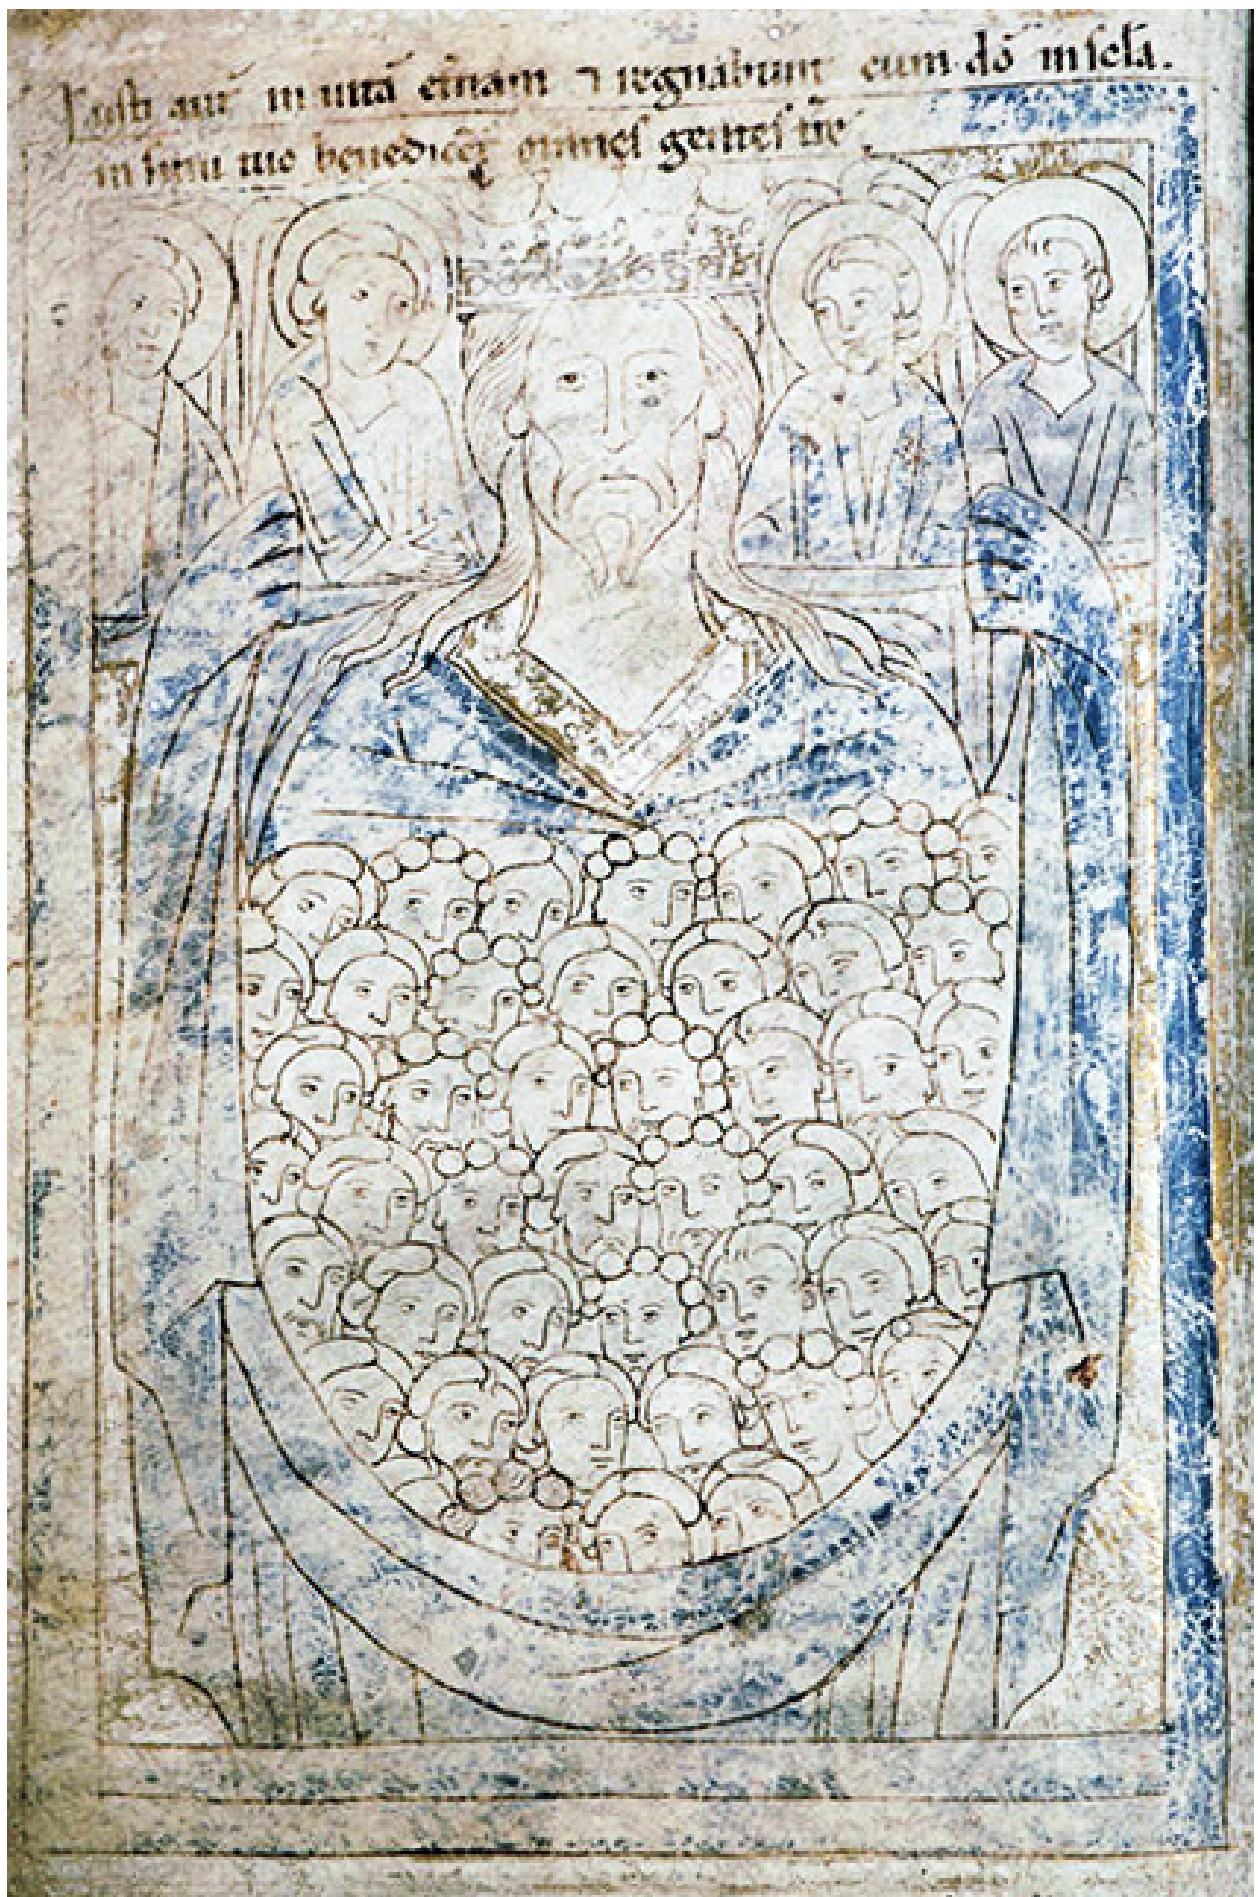 Iusti aut̄ in uitā et̄nam ⁊ regnabunt cum dō in sc̄la.
in sinu tuo benedicēt omnes gentes t̄re